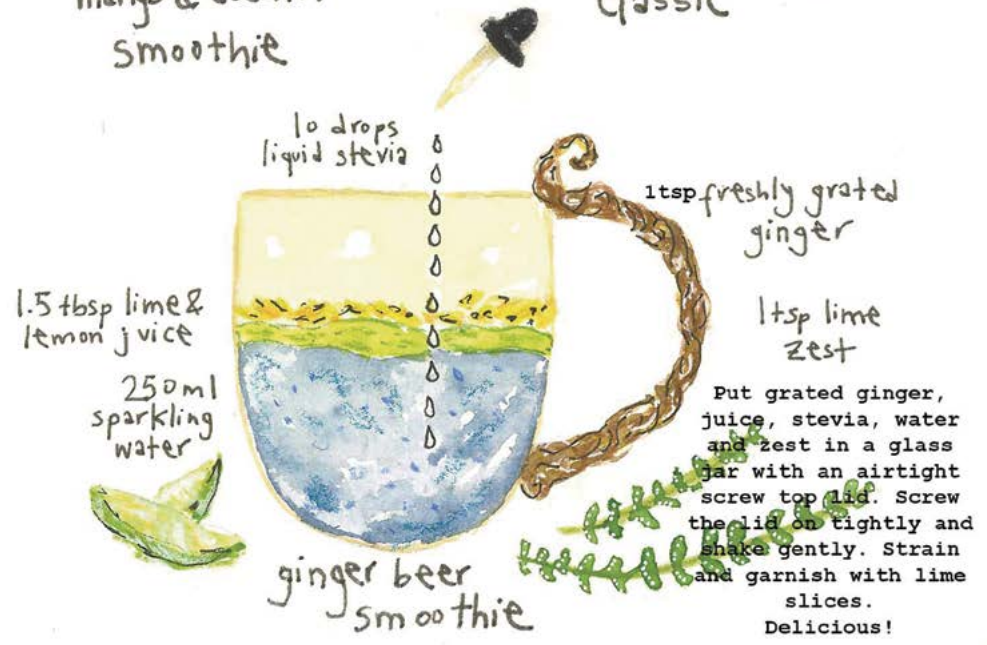 smoothie
classic
10 drops
liquid stevia
1tsp freshly grated
ginger
1.5 tbsp lime &
lemon juice
1tsp lime
zest
250ml
sparkling
water
Put grated ginger,
juice, stevia, water
and zest in a glass
jar with an airtight
screw top lid. Screw
the lid on tightly and
shake gently. Strain
and garnish with lime
slices.
Delicious!
ginger beer
smoothie